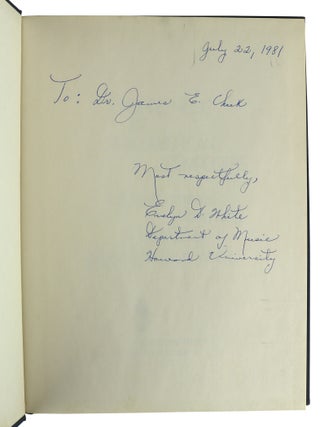 July 22, 1981
To: Dr. James E. Cheek
Most respectfully,
Evelyn D. White
Department of Music
Howard University